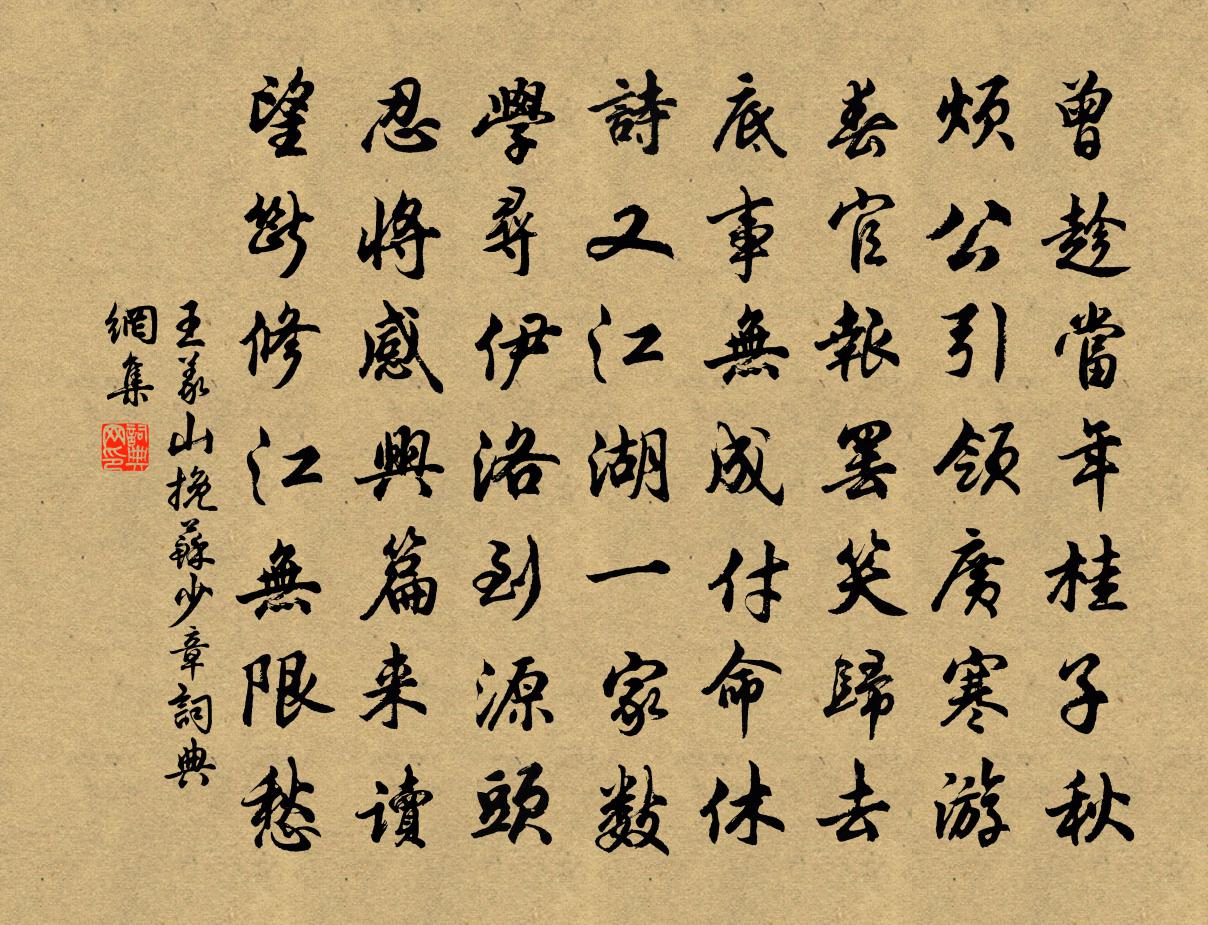 曾趁當年桂子秋
煩公引領廣寒游
春官報罷笑歸去
底事無成付命休
詩又江湖一家數
學尋伊洛到源頭
忍將感興篇来讀
望斷修江無限愁
王義山挽蘇少章詞典
網集
詞典網印